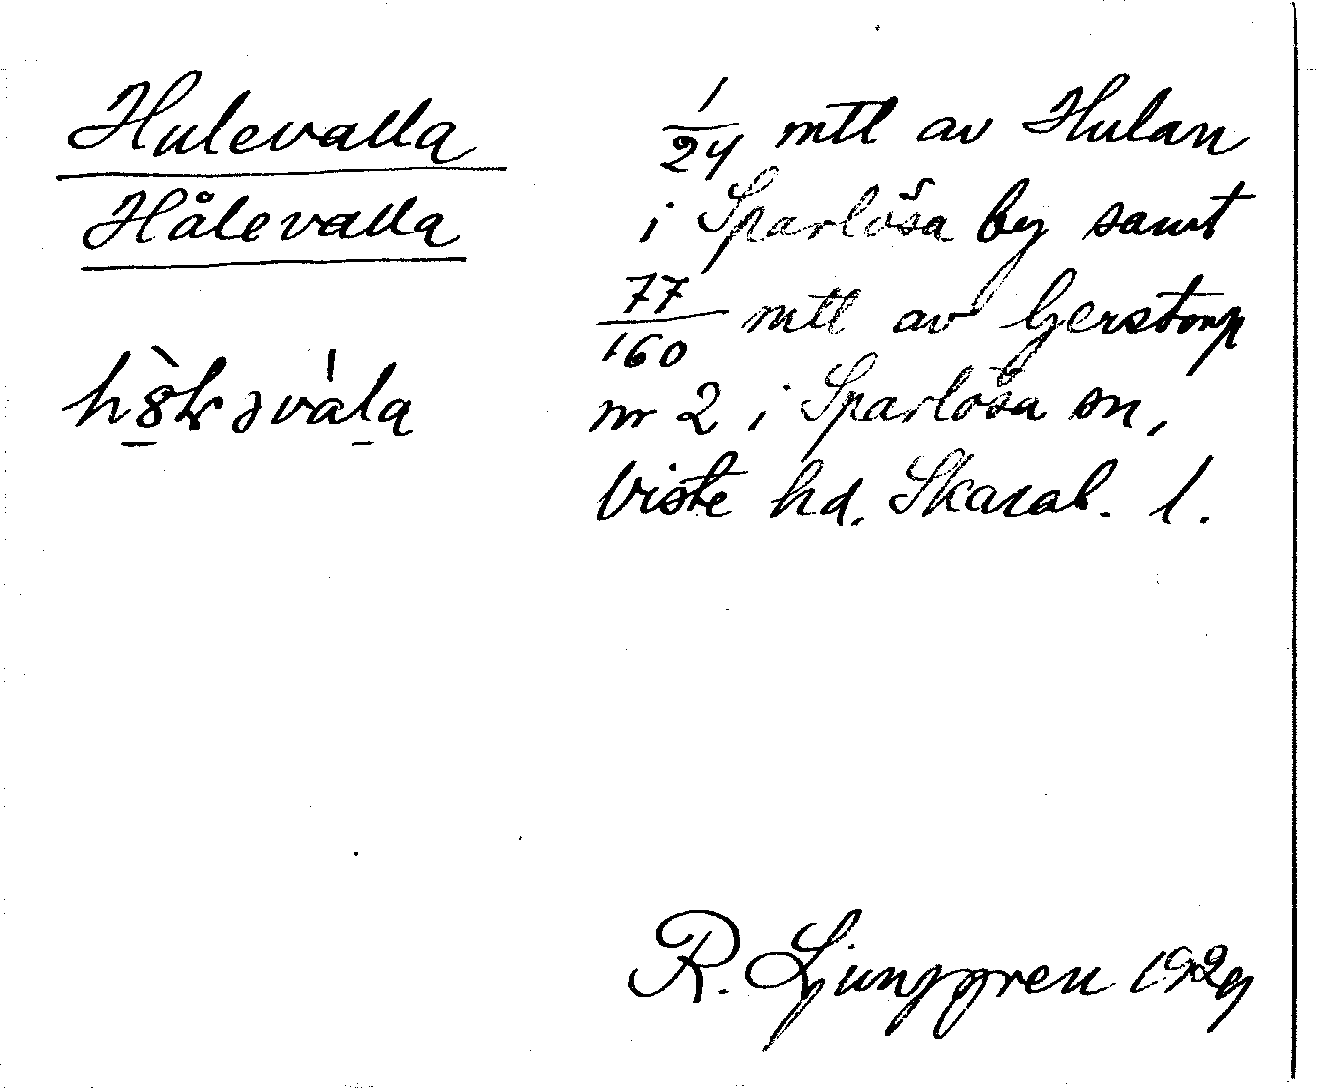 Hulevalla
Hålevalla
1/24 mtl av Hulan
i Sparlösa by samt
77/160 mtl av Gerstorp
nr 2 i Sparlösa sn,
Viste hd. Skarab. l.
R. Ljunggren 1929